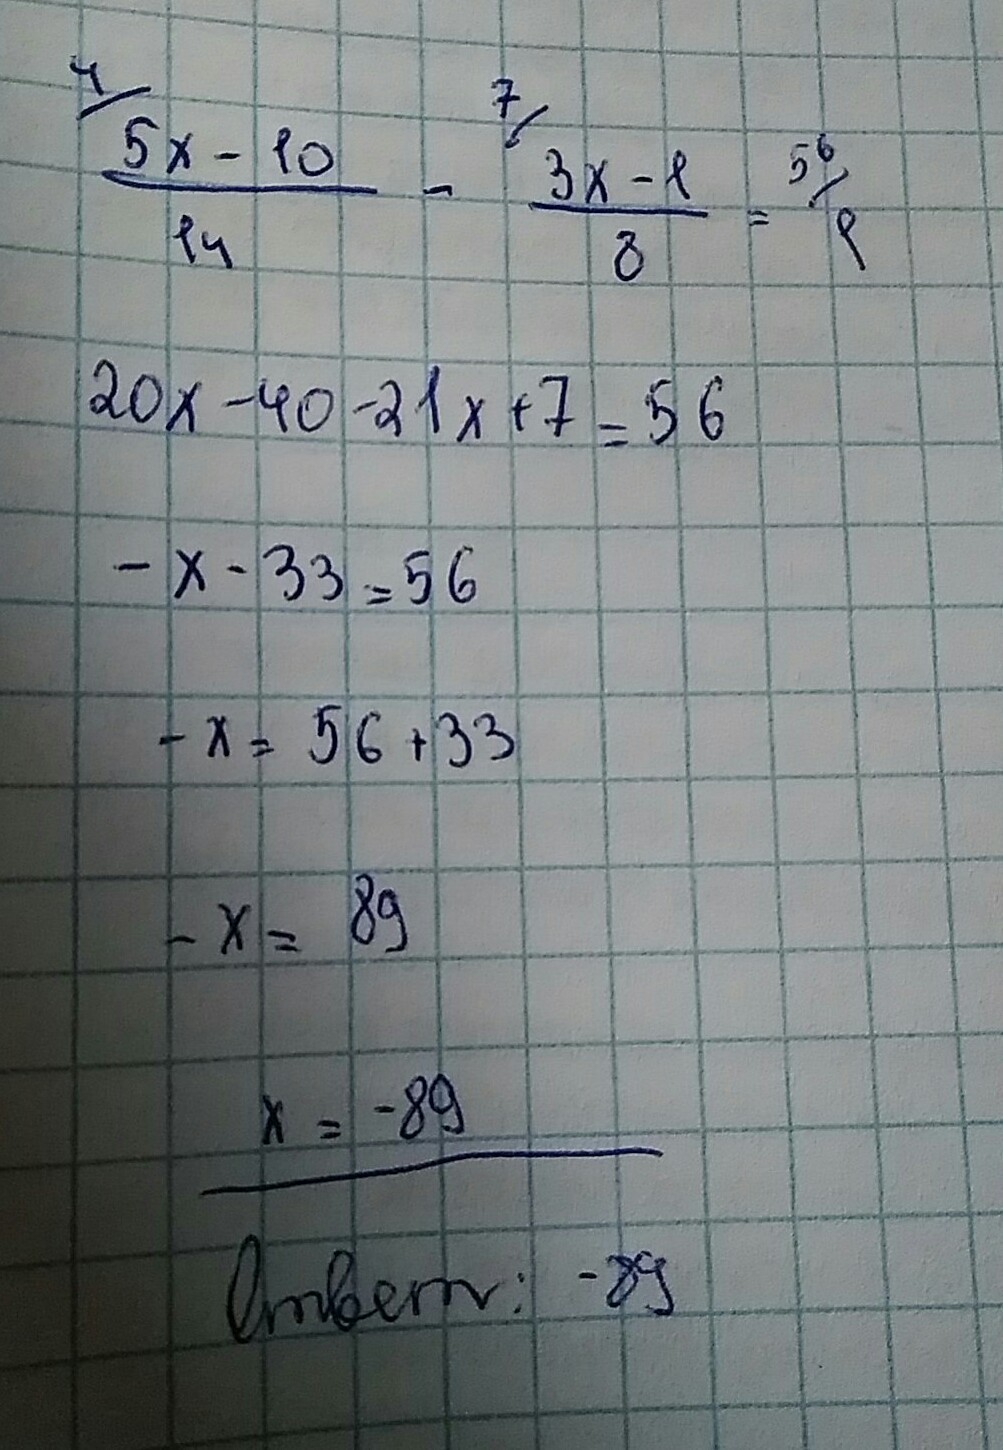 4/ 5x - 10 / 14 - 7/ 3x - 1 / 8 = 56/ 1
20x - 40 - 21x + 7 = 56
- x - 33 = 56
- x = 56 + 33
- x = 89
x = -89
Ответ: -89